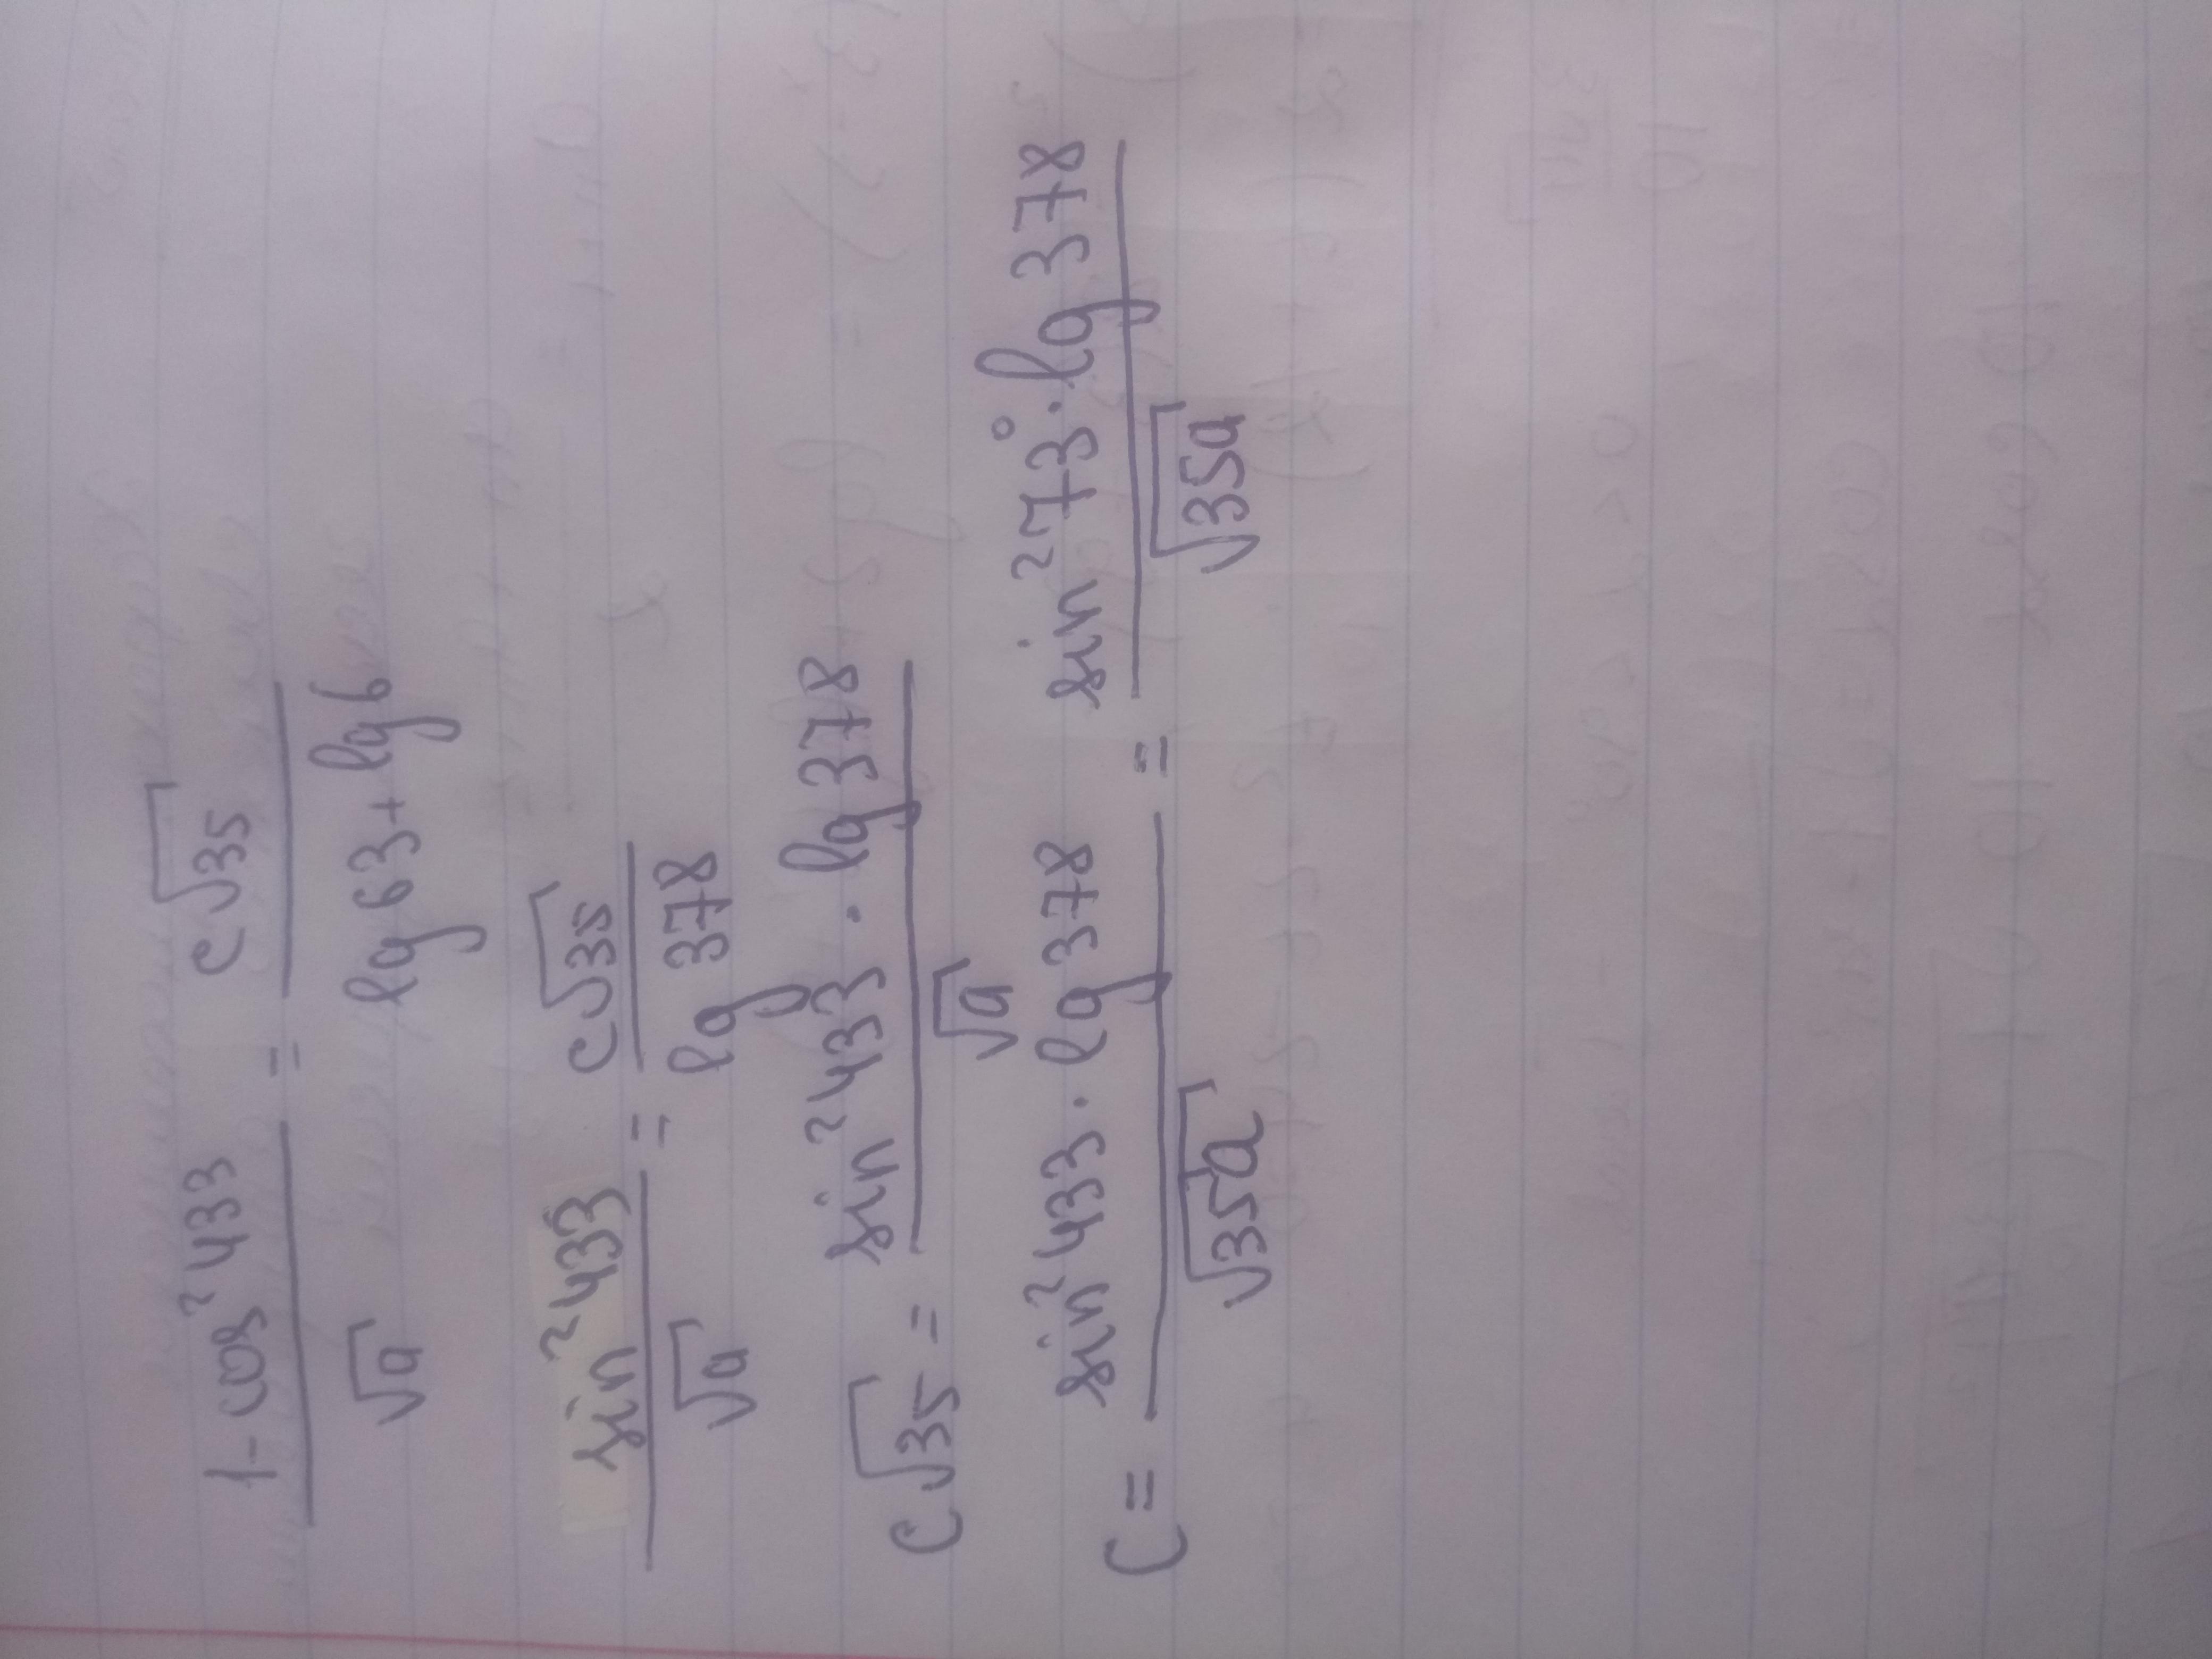 (1 - cos² 433)/√a = c√35/(lg 63 + lg 6)
sin² 433/√a = c√35/lg 378
c√35 = (sin² 433 · lg 378)/√a
c = (sin² 433 · lg 378)/√35a = (sin² 73° · lg 378)/√35a